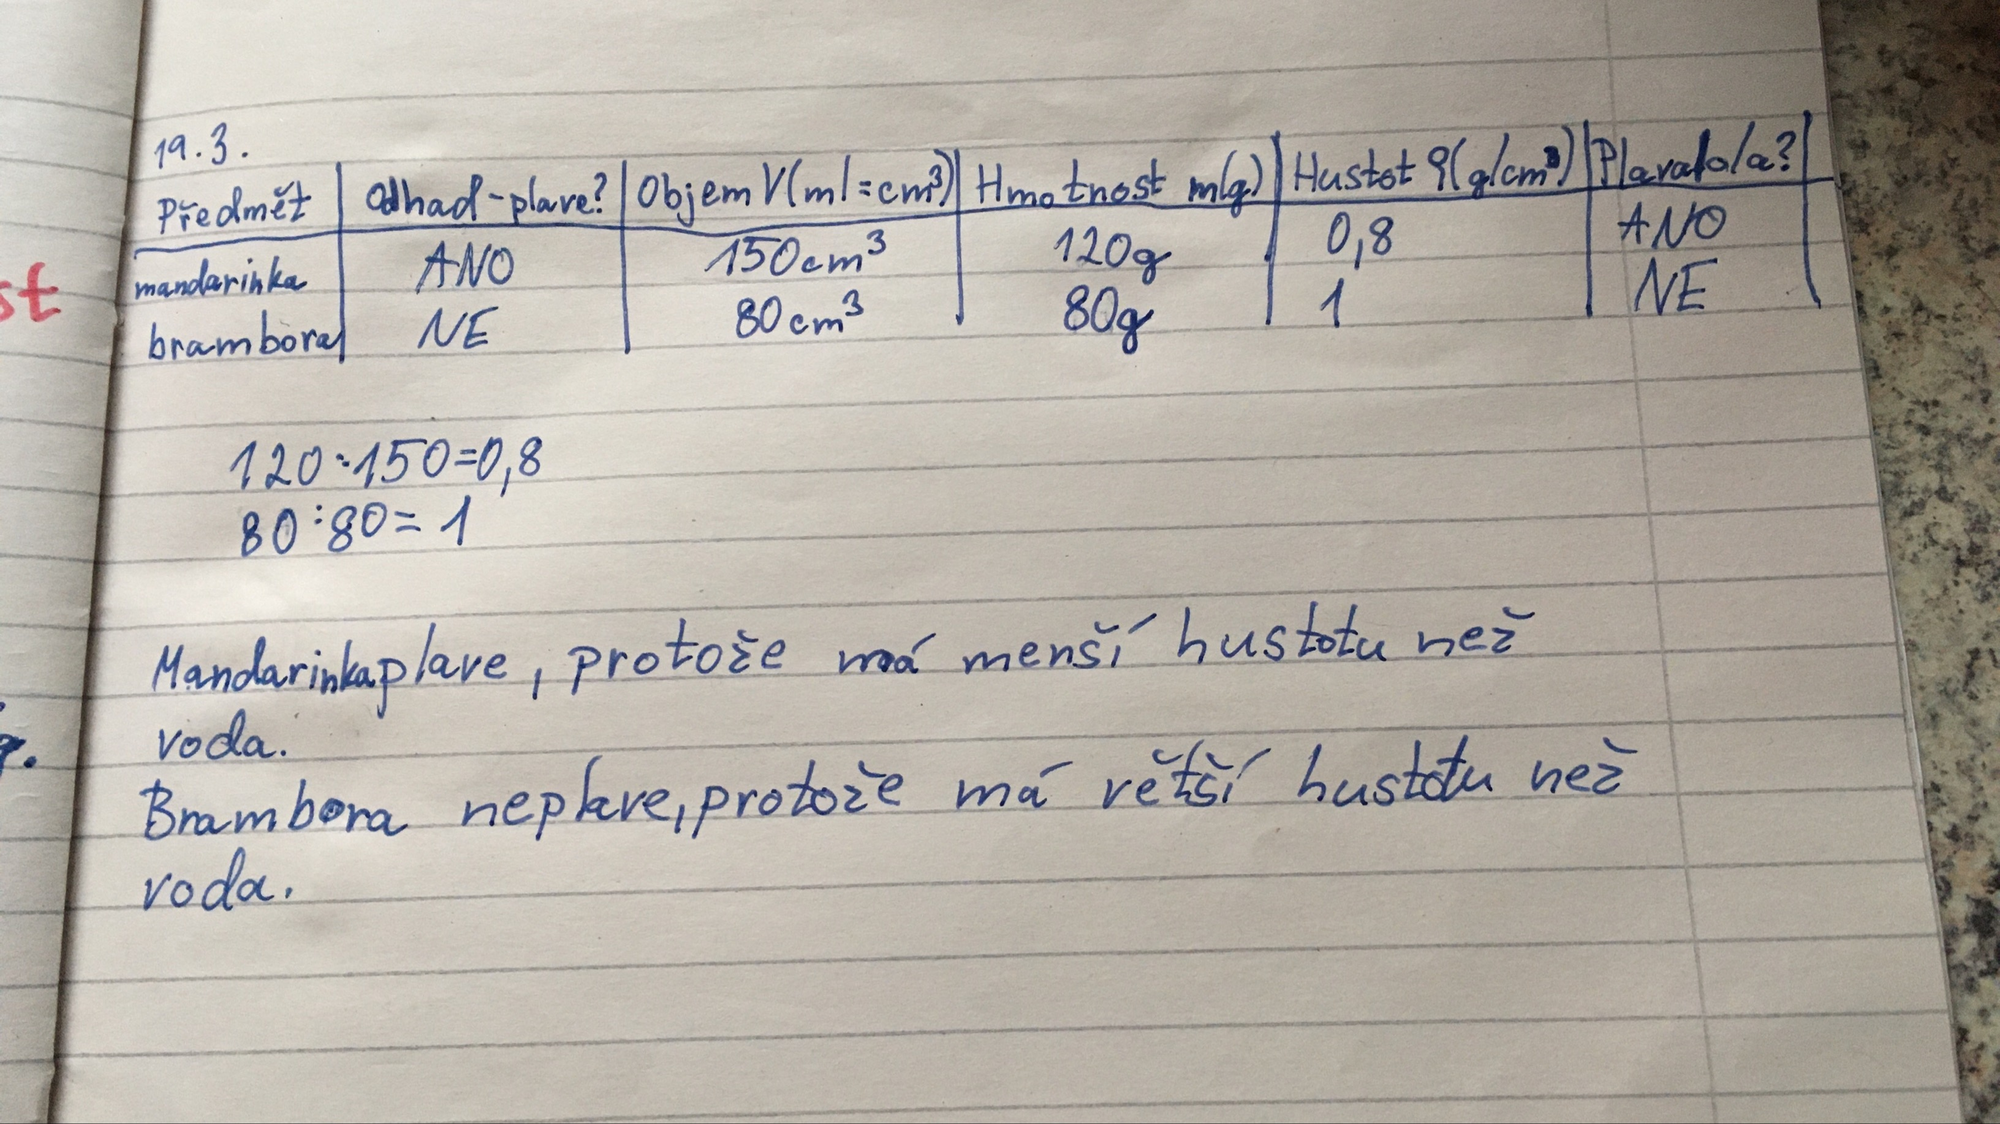 19.3.
Předmět Odhad-plave? Objem V(ml=cm³) Hmotnost m(g) Hustot ρ(g/cm³) Plavalo/a?
mandarinka ANO 150cm³ 120g 0,8 ANO
brambora NE 80cm³ 80g 1 NE
120:150=0,8
80:80=1
Mandarinka plave, protože má menší hustotu než
voda.
Brambora neplave, protože má větší hustotu než
voda.
st